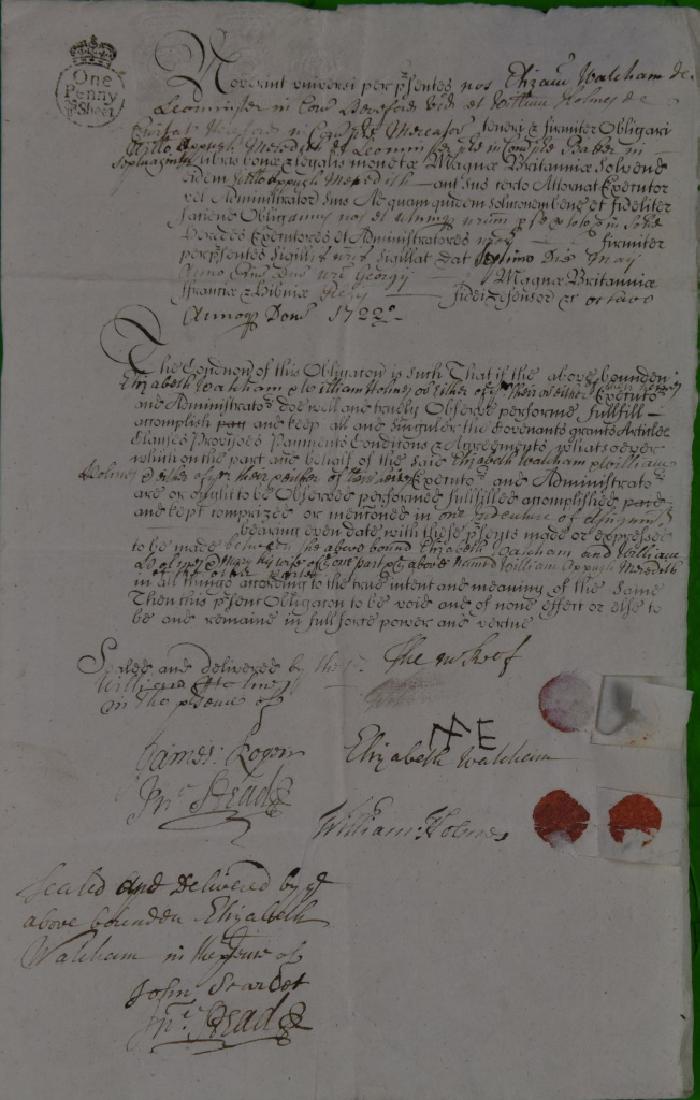 One
Penny
pr Sheet
Noverint universi per psentes nos Elizam Walcham de
Leominster in Com Hereford Vid et Willum Holmes de
Hereford in Mercator teneri & firmiter Obligari
Willo Appugh Meredith de Leominster in Com
Septuaginta libris bonæ & legalis monetæ Magnæ Britanniæ Solvend
eidem Willo Appugh Meredith aut suo certo Attornat Executor
vel Administrator suis Ad quam quidem soluconem bene et fideliter
faciend Obligamus nos et p se & toto & in solid
Heredes Executores et Administratores firmiter
per psentes Sigillis sigillat dat Septimo Die May
Anno Dni Georgij Magnæ Britanniæ
Franciæ & Hibniæ Regis fidei defensor &c octavo
Annoq Doni 1722
The Condicon of this Obligacon is such That if the above bounden
Elizabeth Walcham & William Holmes or either of ym their or either Executors
and Administrators doe well and truely Observe performe fullfill
accomplish and keep all and singuler the Covenants grants Articles
Clauses Provisoes Payments Conditions & Agreements whatsoever
which on the part and behalf of the said Elizabeth Walcham & William
Holmes & either of ym their & either of their Executors and Administrators
are or ought to be Observed performed fullfilled accomplished paid
and kept comprized or mentioned in one Indenture of
bearing even date with these psents made or expressed
to be made between the above bound Elizabeth Walcham and William
Holmes & Mary his wife of ye one part & ye above named William Appugh Meredith
of the other parte
in all things according to the true intent and meaning of the same
Then this psent Obligacon to be void and of none effect or else to
be and remain in full force power and vertue
Sealed and delivered by the The mark of
William Holmes
in the psence of
N E
James Rogers Elizabeth Walcham
Jno Stead
William Holmes
Sealed and Delivered by ye
above bounden Elizabeth
Walcham in the psence of
John Scardot
Jno Stead